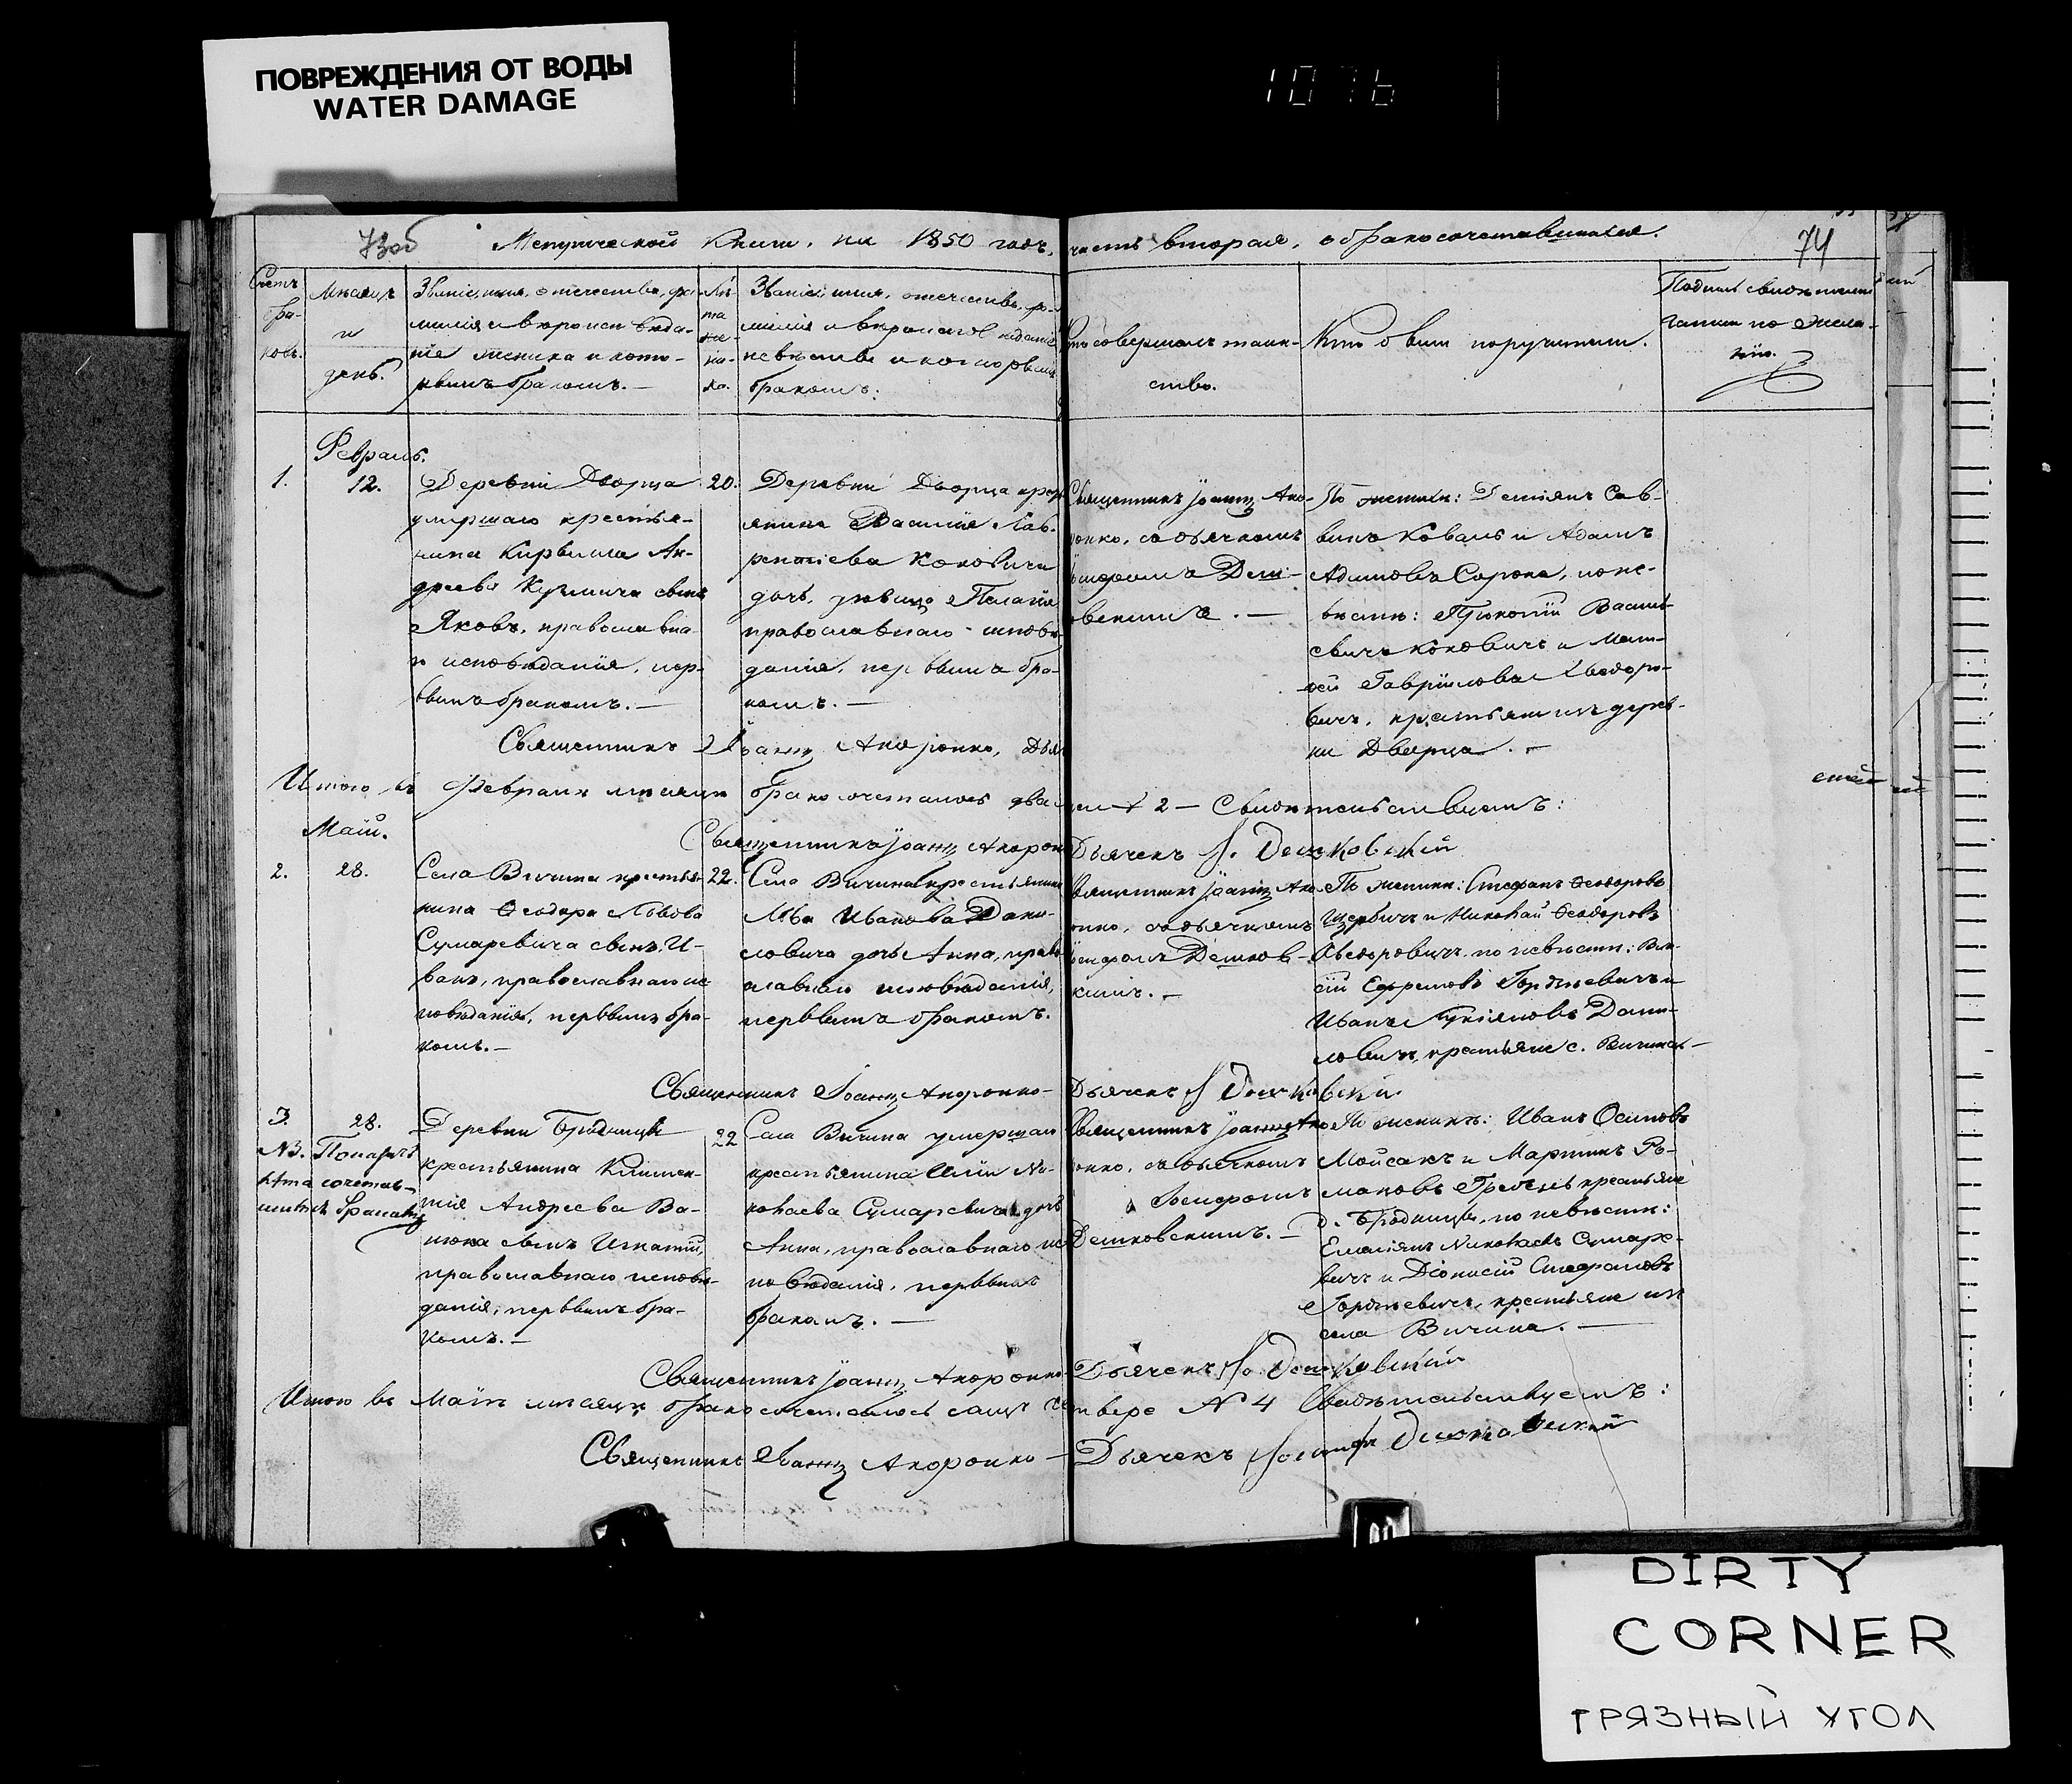 ПОВРЕЖДЕНИЯ ОТ ВОДЫ
WATER DAMAGE
1076
73об
Метрической Книги, на 1850 годъ, часть вторая, о бракосочетавшихся.
74
Счетъ
бра-
ковъ.
Мѣсяцъ
и
день.
Званіе, имя, отечество, фа-
милія и вѣроисповѣда-
ніе жениха и кото-
рымъ бракомъ. —
Лѣ-
та
же-
ни-
ха.
Званіе, имя, отечество, фа-
милія и вѣроисповѣданіе
невѣсты и которымъ
бракомъ:
Кто совершалъ таин-
ство.
Кто были поручители.
по жела-
нію.
Февраль.
1.
12.
Деревни Дворца
умершаго крестья-
нина Кирилла Ан-
дреева Кузмича сынъ
Яковъ, православна-
го исповѣданія, пер-
вымъ бракомъ. —
20.
Деревни Дворца крест
янина Василія Лав-
рентіева Коковича
дочь, дѣвица Пелагія
православнаго исповѣ
данія, первымъ бра-
комъ. —
Священникъ Іоаннъ Ано-
ронко, съ дьячкомъ
Іосифомъ Деш-
ковскимъ. —
По женихѣ: Демьянъ Сав-
винъ Коваль и Адамъ
Адамовъ Сорока, по не-
вѣстѣ: Прокопій Василь-
евичъ Коковичъ и Мат-
ѳей Гавріиловъ Ѳеодоро-
вичъ, крестьяне изъ дерев-
ни Дворца. —
Священникъ Іоаннъ Аноронко, Дья
Итого въ Февралѣ мѣсяцѣ бракосочеталось два лица 2 — Свидѣтельствуемъ:
Май.
Священникъ Іоаннъ Аноронко Дьячекъ І. Дешковскій
2.
28.
Села Вичина крестья-
нина Ѳеодора Львова
Сумаревича сынъ И-
ванъ, православнаго ис
повѣданія, первымъ бра-
комъ. —
22.
Села Вичина крестьянина
Льва Иванова Дани-
ловича дочь Анна, право
славнаго исповѣданія,
первымъ бракомъ.
Священникъ Іоаннъ Ано
ронко, съ дьячкомъ
Іосифомъ Дешков-
скимъ. —
По женихѣ: Стефанъ Ѳеодоровъ
Щербичъ и Николай Ѳеодоровъ
Ѳеодоровичъ, по невѣстѣ:
Ефремовъ Гордѣевичъ и
Иванъ Лукіяновъ Дани-
ловичъ, крестьяне с. Вичина —
Священникъ Іоаннъ Аноронко — Дьячекъ І Дешковскій
3.
28.
Деревни Бродницы
крестьянина Климен-
тія Андреева Ва-
нюка сынъ Игнатій,
православнаго исповѣ-
данія, первымъ бра-
комъ. —
22
Села Вичина умершаго
крестьянина Иліи Ни-
колаева Сумаревича дочь
Анна, православнаго ис
повѣданія, первымъ
бракомъ. —
Священникъ Іоаннъ Ано
ронко, съ дьячкомъ
Іосифомъ
Дешковскимъ. —
По женихѣ: Иванъ Осиповъ
Мойсакъ и Мартинъ Ро-
мановъ Гребень крестьяне
д. Бродницы, по невѣстѣ:
Емельянъ Николаевъ Сумаре-
вичъ и Діонисій Стефановъ
Гордѣевичъ, крестьяне изъ
села Вичина. —
Священникъ Іоаннъ Аноронко Дьячекъ Іо Дешковскій
Итого въ Маѣ мѣсяцѣ бракосочеталось лицъ четверо № 4 Свидѣтельствуемъ:
Священникъ Іоаннъ Аноронко — Дьячекъ Іосифъ Дешковскій
DIRTY
CORNER
ГРЯЗНЫЙ УГОЛ